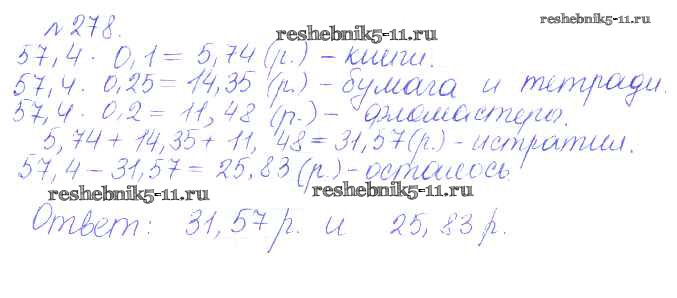 №278.
reshebnik5-11.ru
reshebnik5-11.ru
57,4 · 0,1 = 5,74 (р.) – книги.
57,4 · 0,25 = 14,35 (р.) – бумага и тетради.
57,4 · 0,2 = 11,48 (р.) – фломастеры.
5,74 + 14,35 + 11,48 = 31,57 (р.) – истратил.
57,4 – 31,57 = 25,83 (р.) – осталось
reshebnik5-11.ru
reshebnik5-11.ru
Ответ: 31,57 р. и 25,83 р.